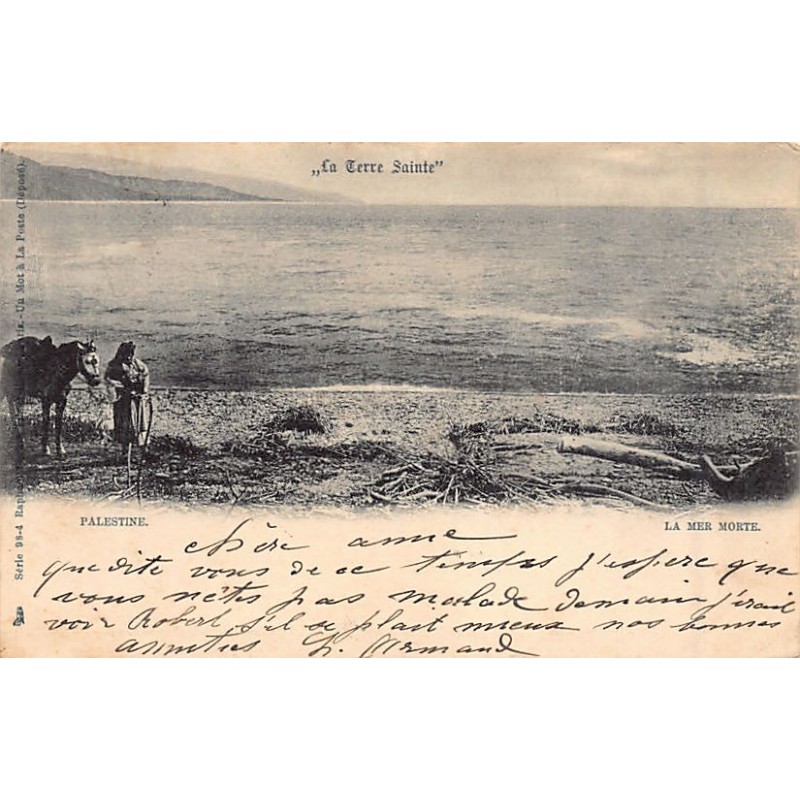 „La Terre Sainte”
PALESTINE.
LA MER MORTE.
Chère amie
que dite vous de ce temps j'espere que
vous n'êts pas malade demain j'irait
voir Robert s'il se plait mieux nos bonnes
amities L. Armand
Série 98-4 Raph -Un Mot à La Poste (Déposé).